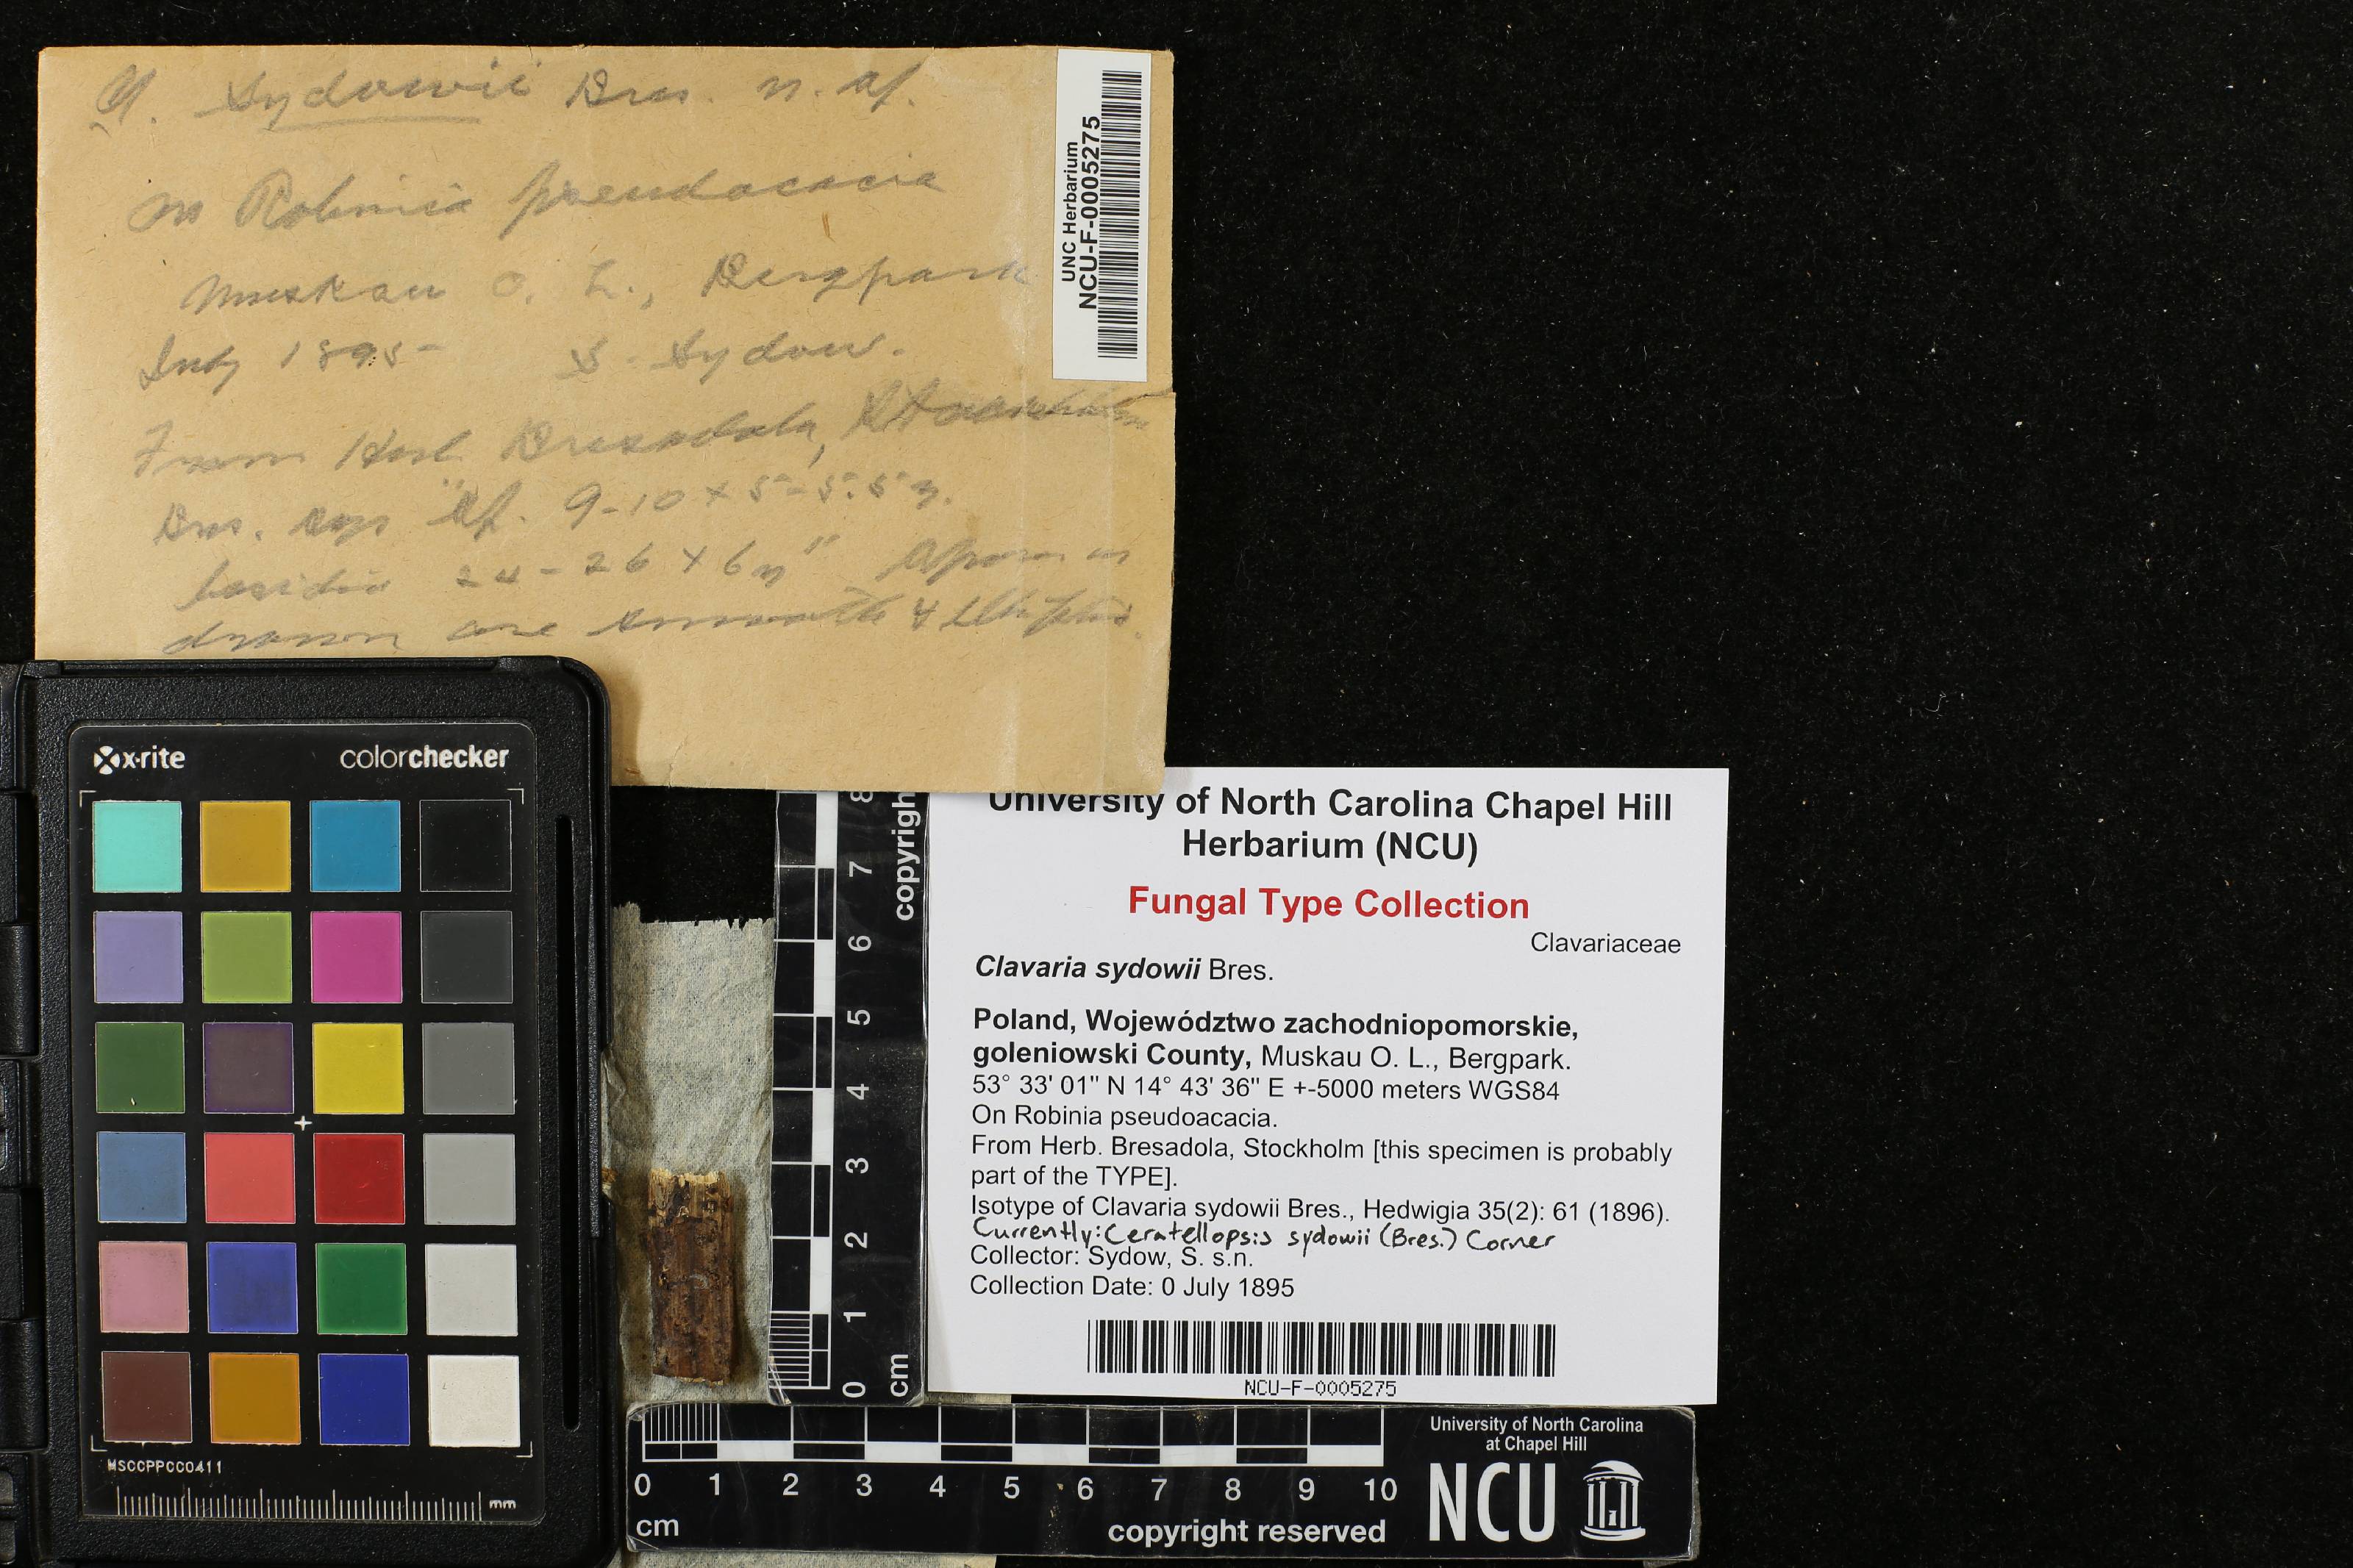 Cl. Sydowii Bres. n. sp.
on Robinia pseudacacia
Muskau O. L., Bergpark
July 1895 S. Sydow.
From Herb. Bresadola, Stockholm
Bres. says "Sp. 9-10 x 5-5.5 μ.
basidia 24-26 x 6 μ" Spores as
drawn are smooth &
UNC Herbarium
NCU-F-0005275
x-rite colorchecker
MSCCPPCC0411
mm
8 7 6 5 4 3 2 1 0
copyright
cm
University of North Carolina Chapel Hill
Herbarium (NCU)
Fungal Type Collection
Clavariaceae
Clavaria sydowii Bres.
Poland, Województwo zachodniopomorskie,
goleniowski County, Muskau O. L., Bergpark.
53° 33' 01" N 14° 43' 36" E +-5000 meters WGS84
On Robinia pseudoacacia.
From Herb. Bresadola, Stockholm [this specimen is probably
part of the TYPE].
Isotype of Clavaria sydowii Bres., Hedwigia 35(2): 61 (1896).
Currently: Ceratellopsis sydowii (Bres.) Corner
Collector: Sydow, S. s.n.
Collection Date: 0 July 1895
NCU-F-0005275
0 1 2 3 4 5 6 7 8 9 10
cm copyright reserved
University of North Carolina
at Chapel Hill
NCU